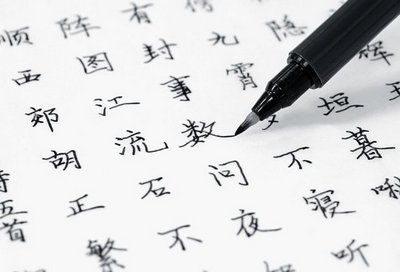 辉
隐 垣暮啾
九霄 不寝听
有封事数问夜
阵图江流石不
顺西郊胡正繁
五首